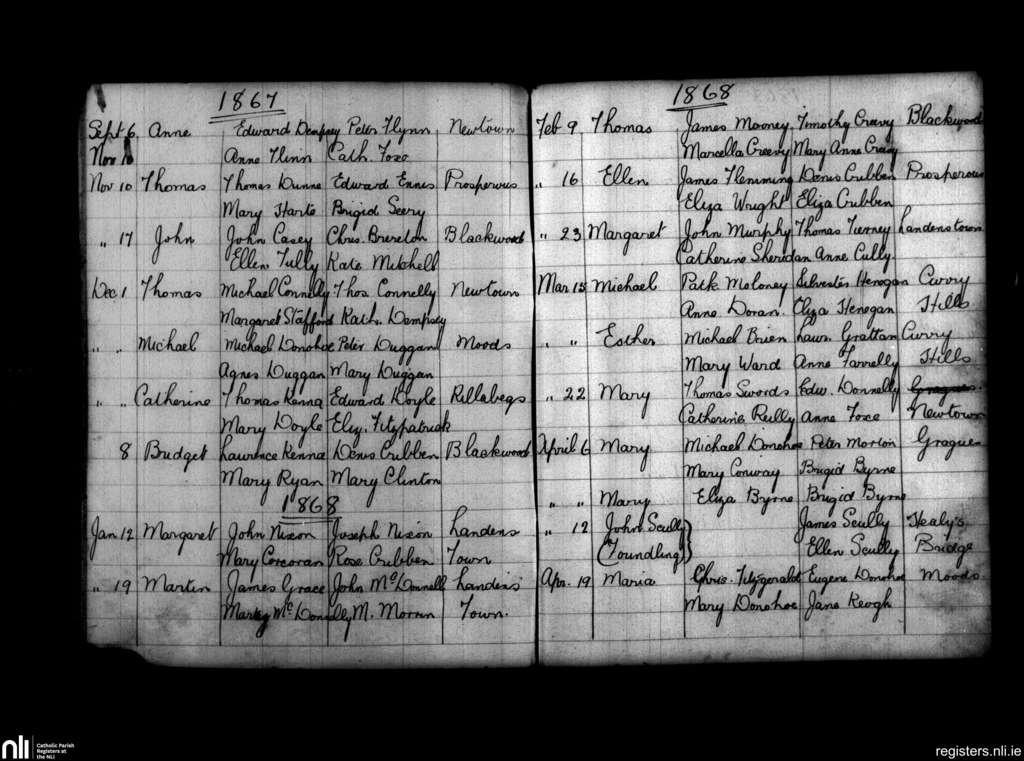 1867
Sept 6 Anne Edward Dempsey Peter Flynn Newtown
Nov Anne Flinn Cath. Foxe
Nov 10 Thomas Thomas Dunne Edward Ennis Prosperous
Mary Harte Brigid Seery
" 17 John John Casey Chris. Brereton Blackwood
Ellen Tully Kate Mitchell
Dec 1 Thomas Michael Connelly Thos. Connelly Newtown
Margaret Stafford Kath. Dempsey
" " Michael Michael Donohoe Peter Duggan Moods
Agnes Duggan Mary Duggan
" " Catherine Thomas Kenna Edward Doyle Killabegs
Mary Doyle Eliz. Fitzpatrick
8 Bridget Lawrence Kenna Denis Cribben Blackwood
Mary Ryan Mary Clinton
1868
Jan 12 Margaret John Nixon Joseph Nixon Landens
Mary Corcoran Rose Cribben Town
" 19 Martin James Grace John McDonnell Landens
Mary McDonnelly M. Morrin Town.
1868
Feb 9 Thomas James Mooney Timothy Creevy Blackwood
Marcella Creevy Mary Anne Creevy
" 16 Ellen James Flemming Denis Cribben Prosperous
Eliza Wright Eliza Cribben
" 23 Margaret John Murphy Thomas Tierney Landenstown
Catherine Sheridan Anne Cully
Mar 15 Michael Patk Moloney Silvester Henegan Curry
Anne Doran. Eliza Henegan Hills
" " Esther Michael Brien Lawr. Grattan Curry
Mary Ward Anne Farrelly Hills
" 22 Mary Thomas Swords Edw. Donnelly Gragues.
Catherine Reilly Anne Foxe Newtown
April 6 Mary Michael Donohoe Peter Morton Gragues
Mary Conway Brigid Byrne
" " Mary Eliza Byrne Brigid Byrne
" 12 John Scully James Scully Healy's
(Foundling) Ellen Scully Bridge
Apr. 19 Maria Chris. Fitzgerald Eugene Donohoe Moods.
Mary Donohoe Jane Keogh
nli
Catholic Parish
Registers at
the NLI
registers.nli.ie